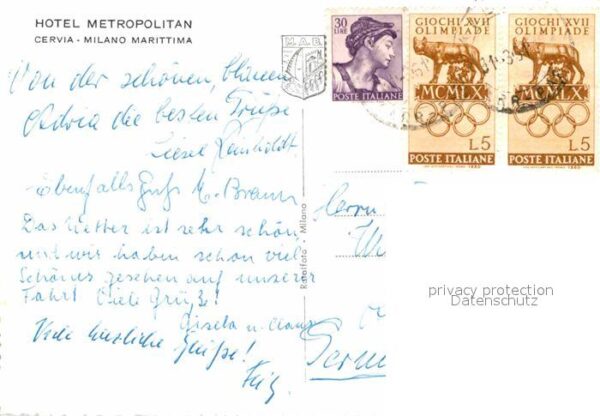 HOTEL METROPOLITAN
CERVIA - MILANO MARITTIMA
M.A.B.
30
LIRE
POSTE ITALIANE
GIOCHI XVII
OLIMPIADE
MCMLX
L.5
POSTE ITALIANE
GIOCHI XVII
OLIMPIADE
MCMLX
L.5
POSTE ITALIANE
Von der schönen, blauen
Adria die besten Grüße
Liesel Reinholdt
Ebenfalls Gruß E. Braun
Das Wetter ist sehr schön
und wir haben schon viel
Schönes gesehen auf unserer
Fahrt Viele Grüße!
Gisela u. Claus
Viele herzliche Grüße!
Rotalfoto - Milano
Herrn
privacy protection
Datenschutz
Germ